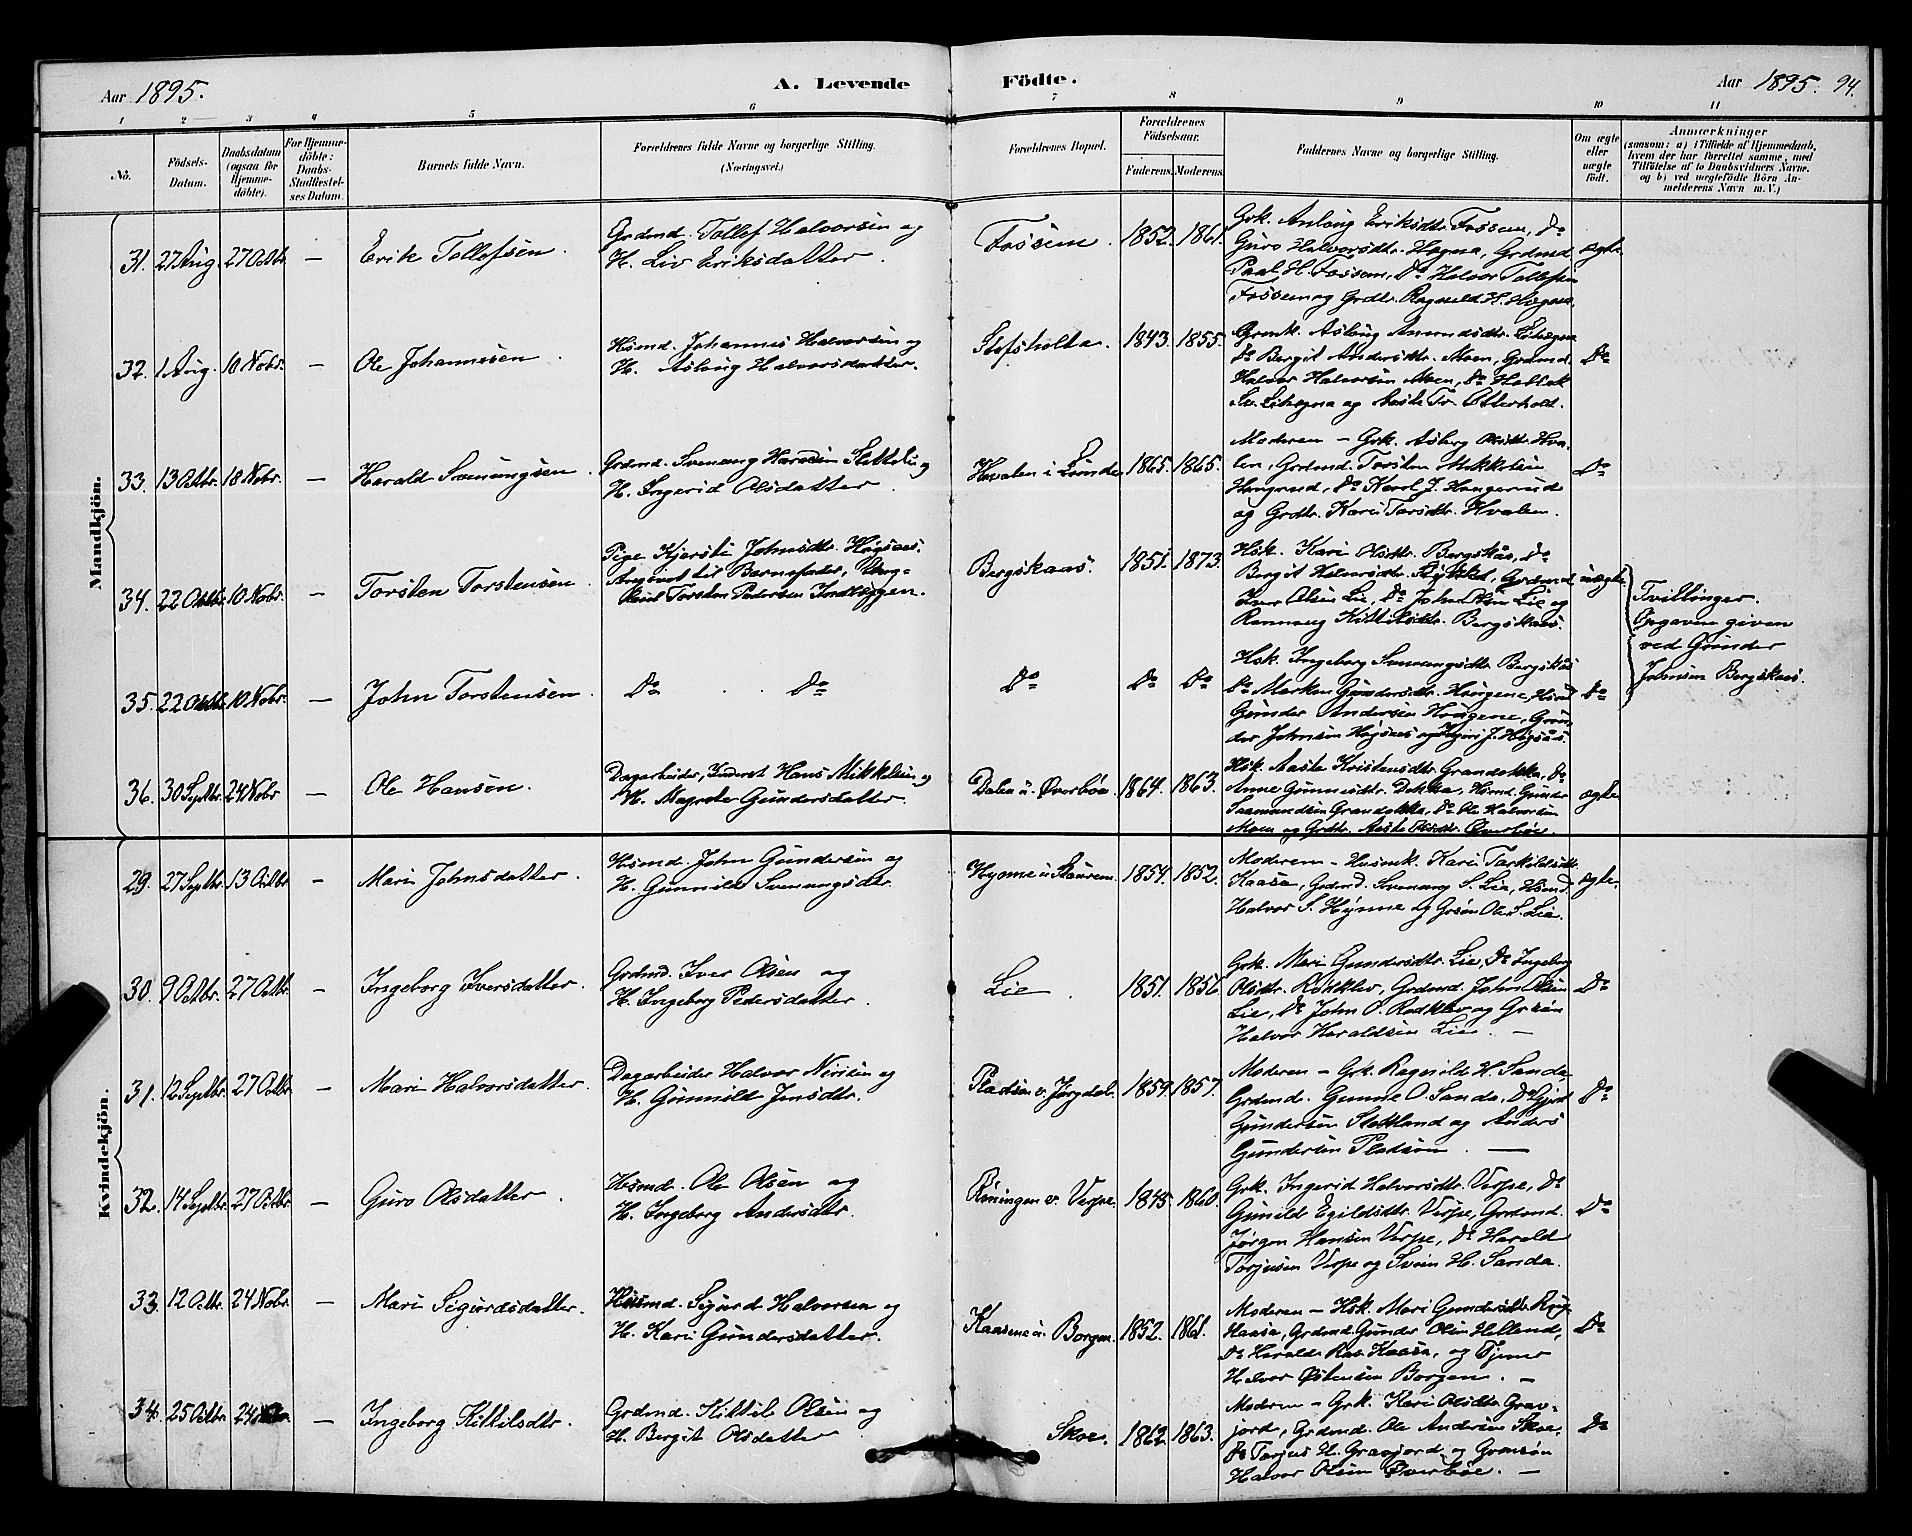 Aar 1895.
A. Levende
Födte.
Aar 1895. 94.
1 2 3 4 5 6 7 8 9 10 11
No.
Födsels-Datum.
Daabsdatum (ogsaa for Hjemmedöbte).
For Hjemmedöbte: Daabs-Stadfæstelses Datum.
Barnets fulde Navn.
Forældrenes fulde Navne og borgerlige Stilling. (Næringsvei.)
Forældrenes Bopæl.
Forældrenes Födselsaar.
Faderens. Moderens.
Faddernes Navne og borgerlige Stilling.
Om ægte eller uægte födt.
Anmærkninger
(saasom: a) i Tilfælde af Hjemmedaab, hvem der har forrettet samme, med Tilföielse af to Daabsvidners Navne. og b) ved uægtefödte Börn Anmelderens Navn m. V.)
Mandkjön.
31. 27 Aug. 27 Octbr. — Erik Tollefsen.
Grdmd. Tollef Halvorsen og
H. Liv Eriksdatter.
Fossem. 1852. 1861.
Grk. Anlaug Eriksdtr. Fossem, Do
Guro Halvorsdtr. Hogna, Grdmd.
Paal H. Fossem, Do Halvor Tollefsen
Fossem og Grdtr. Ragnild H. Hogna.
ægte.
32. 1 Aug. 10 Novbr. — Ole Johannesen.
Hsmd. Johannes Halvorsen og
H. Aslaug Halvorsdatter.
Stefsholta. 1843. 1855.
Aslaug
Do Bergit Andersdtr. Moen, Grdmd.
Halvor Halvorsen Moen, Do
og Otterholt.
Do
33. 13 Octbr. 18 Novbr. — Harald Svenungsen.
Grdmd. Svenung og
H. Ingerid Olsdatter.
Hvalen i Lunde. 1865. 1865.
Moderen — Grk. Asberg Olsdtr. Hva-
len, Grdmd. Torsten Mikkelsen
Do Karol J. Haugerud
og Grdtr. Karen Torsdtr. Hvalen.
Do
34. 22 Octbr. 10 Novbr. — Torsten Torstensen.
Pige Kjersti Johnsdtr. Høgsaas.
Angivet til Barnefader, Ung-
karl Torsten Pedersen
Bergskaas. 1851. 1873.
Hsk. Kari Bergskaas, Do
Bergit Halvorsdtr. Grdmd.
Iver Olsen Lie, Do John Olsen Lie og
Rannaug Kittilsdtr. Bergskaas.
uægte
Tvillinger.
Opgaven given
ved Gunder
Johnsen Bergskaas.
35. 22 Octbr. 10 Novbr. — John Torstensen.
Do Do
Do Do Do
Hsk. Ingeborg Svenungsdtr. Bergskaas
Do Marken Gundersdtr. Haugene, Hsmd.
Gunder Andersen Haugene, Gun-
der Johnsen Høgsaas og J. Høgsaas.
Do
36. 30 Septbr. 24 Novbr. — Ole Hansen.
Dagarbeider, Inderst Hans Mikkelsen og
H. Magrete Gundersdatter.
Dalen u. Øverbøe. 1864. 1863.
Hsk. Aaste Kristensdtr. Grandokka, Do
Anne Dokka, Hsmd. Gunder
Saamundsen Grandokka, Do Ole Halvorsen
Moen og Grdtr. Aaste Olsdtr. Øverbøe.
ægte
Kvindekjön.
29. 27 Septbr. 13 Octbr. — Mari Johnsdatter.
Hsmd. John Gundersen og
H. Gunnild Svenungsdtr.
Hynne u. Staurem. 1854. 1852.
Moderen — Husmk. Kari Tarkildsdtr.
Kaasa, Grdmd. Svenung S. Lie, Hsmd.
Halvor S. Hynne og Grsøn Ole S. Lie.
ægte.
30. 9 Octbr. 27 Octbr. — Ingeborg Iversdatter.
Grdmd. Iver Olsen og
H. Ingeborg Pedersdatter.
Lie. 1851. 1851.
Grk. Mari Gundersdtr. Lie, Do Ingeborg
Olsdtr. Rodklev, Grdmd. John Olsen
Lie, Do John O. Rodklev og Grsøn
Halvor Haraldsen Lie. —
Do
31. 12 Septbr. 27 Octbr. — Mari Halvorsdatter.
Dagarbeider Halvor Nirisen og
H. Gunnild Jensdtr.
Pladsen v. Jørgdal. 1854. 1857.
Moderen — Grk. Ragnild H. Sanda,
Grdmd. Gunne O. Sanda, Do
Gundersen Stokland og Anders
Gundersen Pladsen. —
Do
32. 14 Septbr. 27 Octbr. — Guro Olsdatter.
Hsmd. Ole Olsen og
H. Ingeborg Andersdtr.
Røningen v. Verpe. 1845. 1860.
Grk. Ingerid Halvorsdtr. Verpe, Do
Gunild Egildsdtr. Verpe, Grdmd.
Jørgen Hansen Verpe, Do Harald
Torjusen Verpe og Svein H. Sanda.
Do
33. 12 Octbr. 24 Novbr. — Mari Sigurdsdatter.
Husmd. Sigurd Halvorsen og
H. Kari Gundersdatter.
Kaasene u. Borgen. 1852. 1861.
Moderen — Hsk. Mari Gundersdtr.
Haasa, Grdmd. Gunder Olsen Helland,
Do Harald Kaasa, og Tjener
Halvor Østensen Borgen. —
Do
34. 25 Octbr. 24 — Ingeborg Kittilsdtr.
Grdmd. Kittil Olsen og
H. Bergit Olsdatter
Skoe. 1862. 1863.
Moderen — Grk. Kari Olsdtr. Grav-
jord, Grdmd. Ole Andersen Skoe,
Do Torjus H. Gravjord og
Halvor Olsen Øverbøe. —
Do